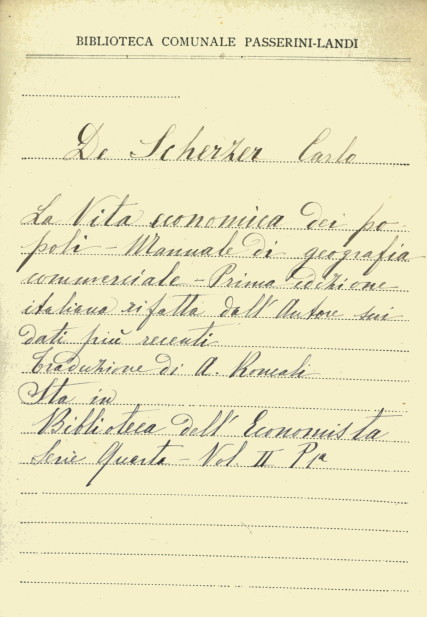 BIBLIOTECA COMUNALE PASSERINI-LANDI
De Scherzer Carlo
La Vita economica dei po
poli - Manuale di geografia
commerciale - Prima edizione
italiana rifatta dall' Autore sui
dati più recenti
Traduzione di A. Roncali
Sta in
Biblioteca dell' Economista
Serie Quarta - Vol. II P. 1ª